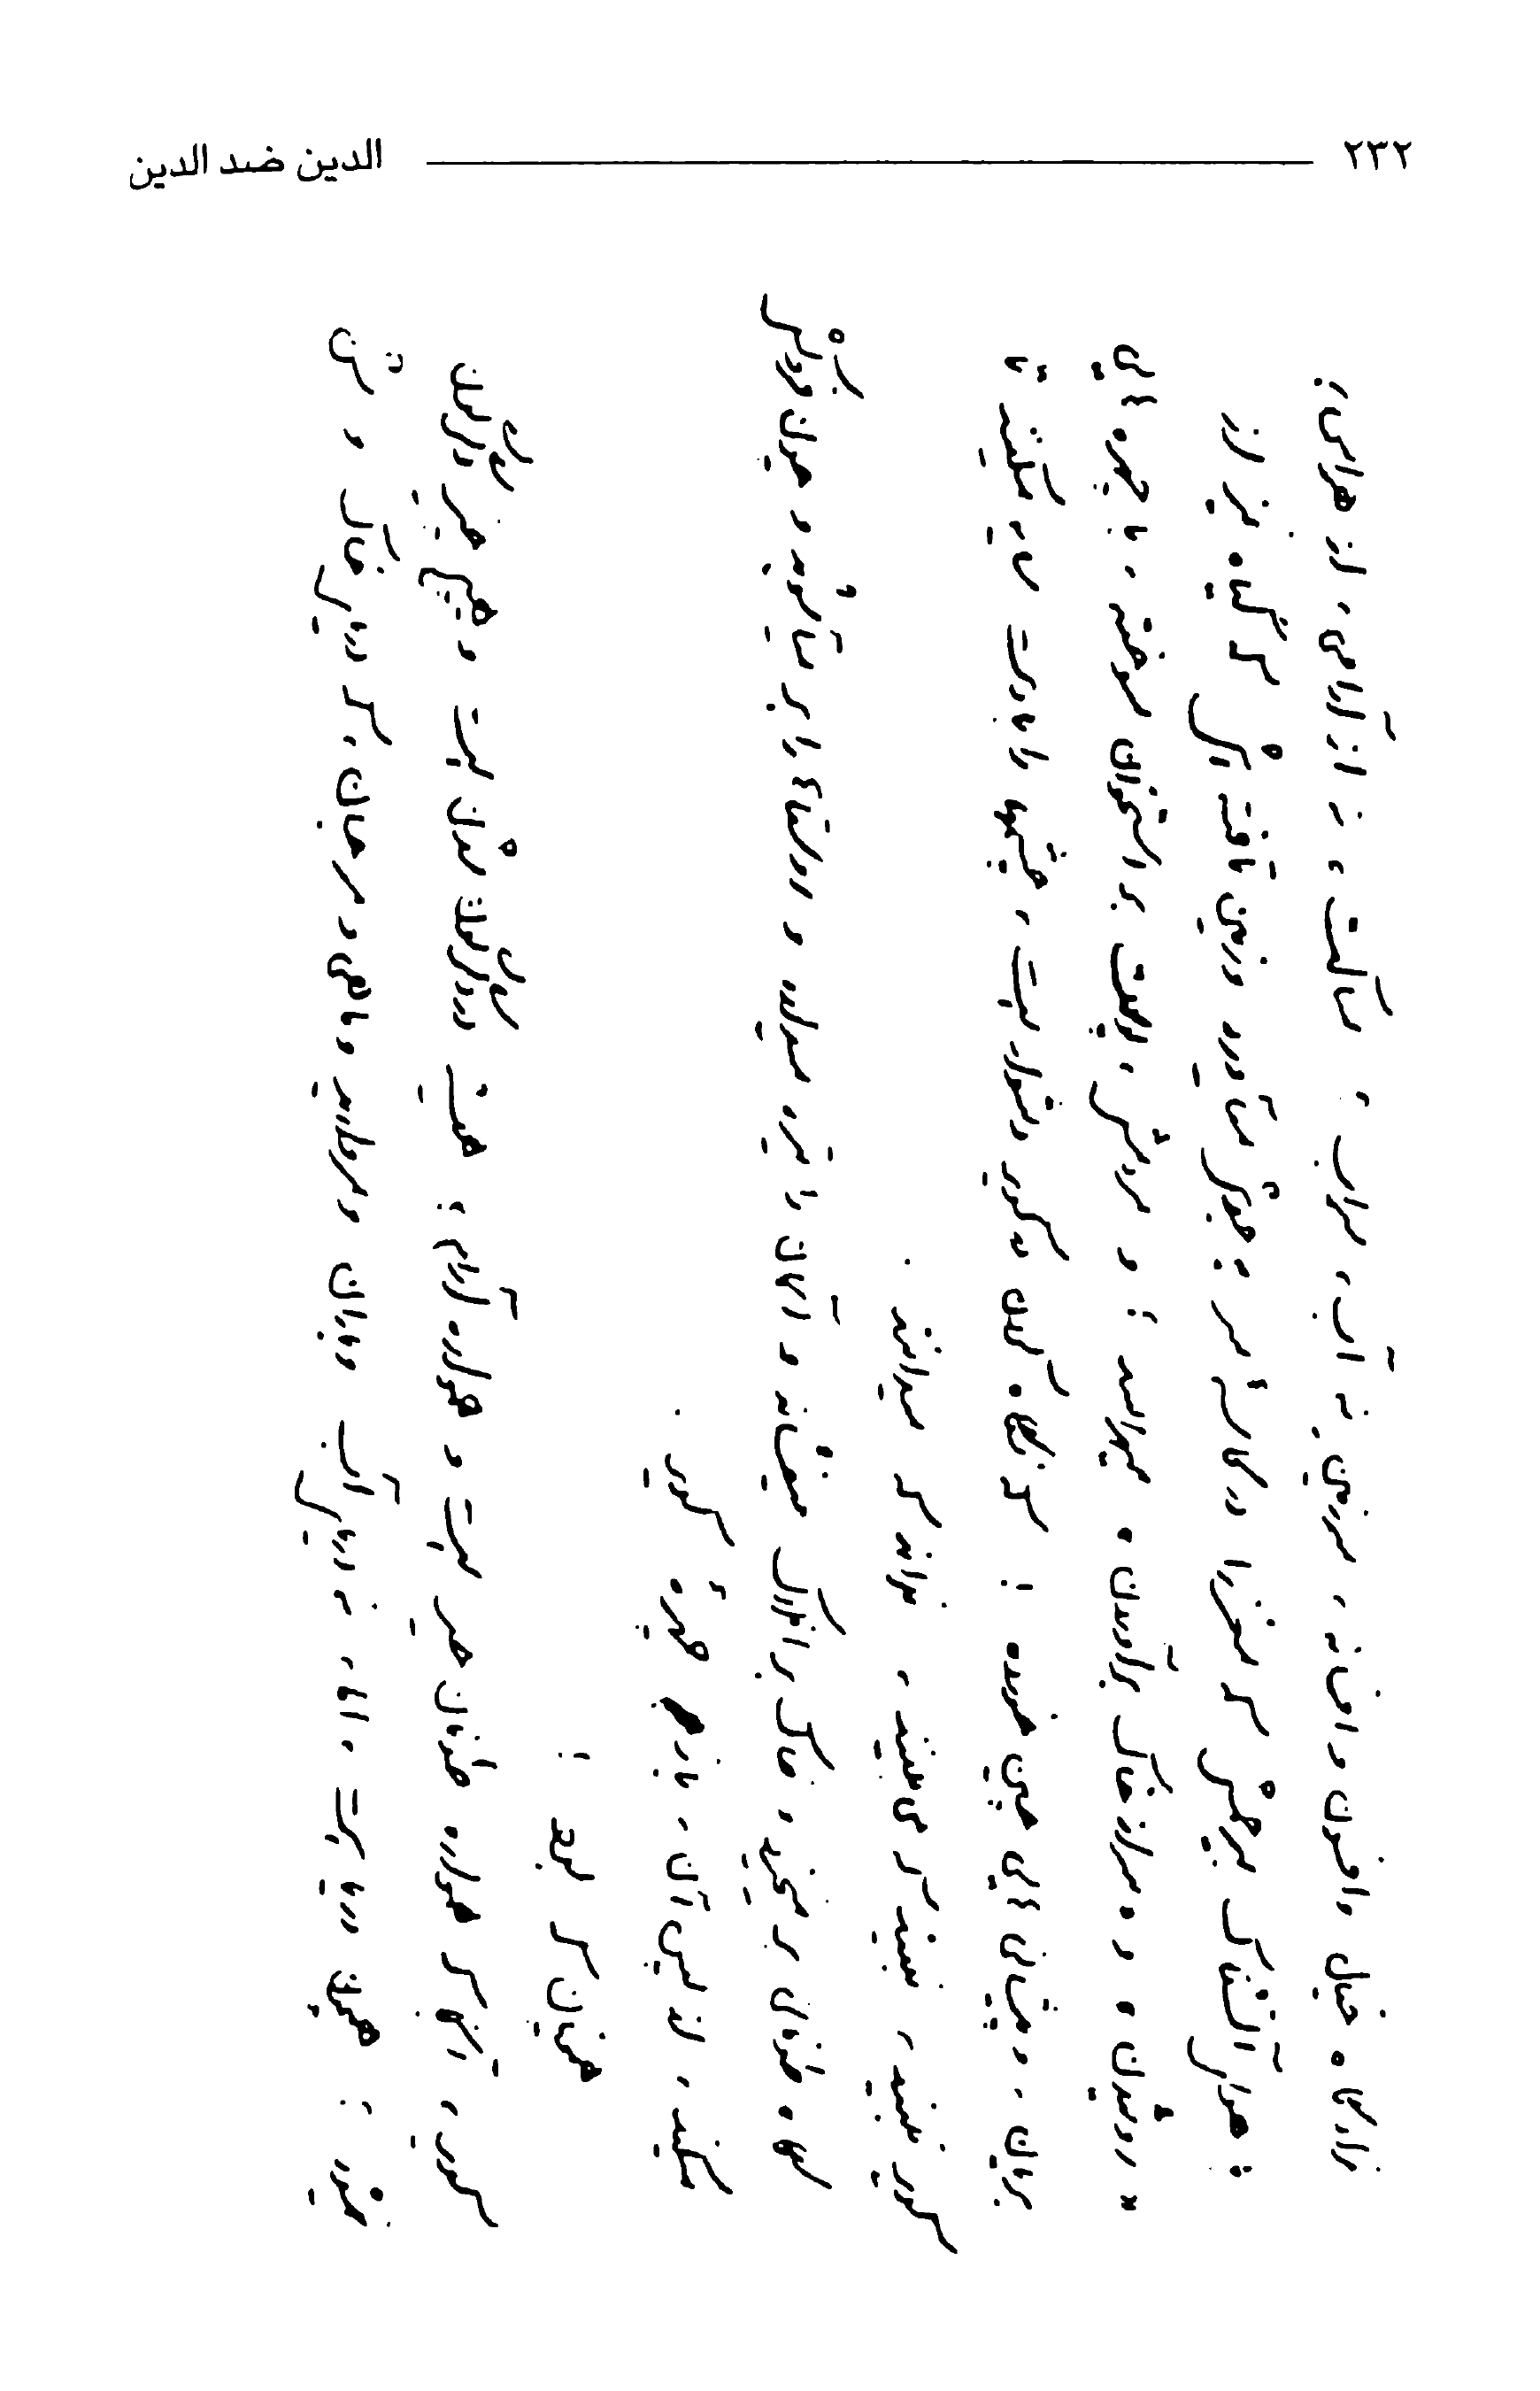 ٢٣٢ الدين ضد الدين
زادگاه خیال و افسون و افسانه ، سرزمین نه آب ، سراب ؛ ساکت ، نه از آرامی ، از هراس ؛
با هوای آتشناک بیرحمش که مغز را در کاسهٔ سر به جوش می‌آورد و زمین تافته اش که گیاه نیز از
« روئیدن » و « سر از خاک برآوردن » میهراسد ؛ و مردمش ، پوست بر استخوان سوخته ، با چهره هایی
بریان ، و پیشانی هایی چین خورده ! که نگاه کردن در کویر دشوار است ، چشمها را با دست سایه میکنند تا
کویر نبیند ، نبیند که می بیند ، نداند که میداند .
سیاه طوفان بر میخیزد ، خاک بر افلاک میفشاند و آسمان را تیره میسازد و روستاها را بر می‌آشوبد و چون فروکش
میکند ، از پس آن ، باز هم چهرهٔ کویر .
همچنان که بود !
کویر ، آنجا که همواره طوفان خیز است و همواره آرام ؛ همیشه در دگرگون شدن است و هیچ چیز دگرگون
نمیشود ؛ همچون دریا است ، اما ، نه دریای آب و باران و مروارید و ماهی و مرجان ، که دریای خاک و شن